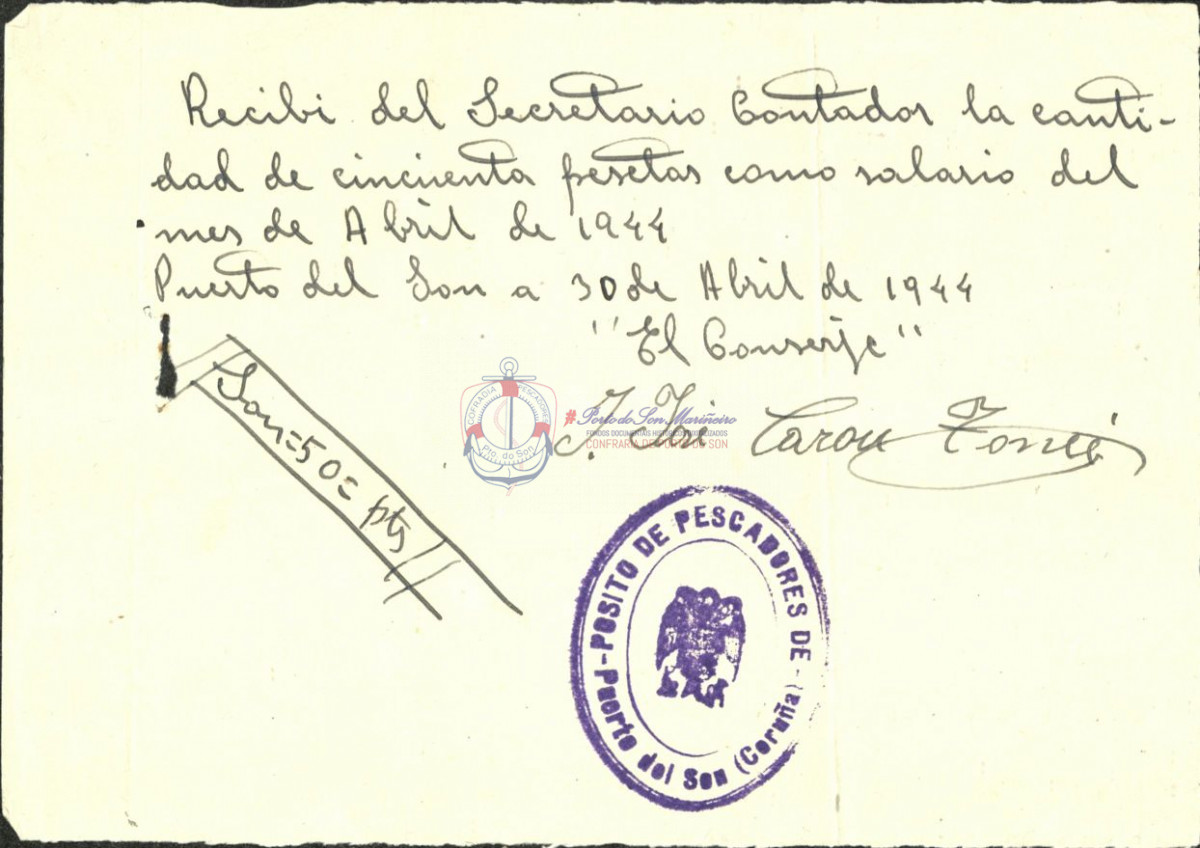 Recibi del Secretario Contador la canti-
dad de cincuenta pesetas como salario del
mes de Abril de 1944
Puerto del Son a 30 de Abril de 1944
"El Conserje"
Son=50= pts
COFRADIA PESCADORES
Pto. do Son
#Porto do Son Mariñeiro
CONFRARIA DE PORTO DO SON
POSITO DE PESCADORES DE
Puerto del Son (Coruña)